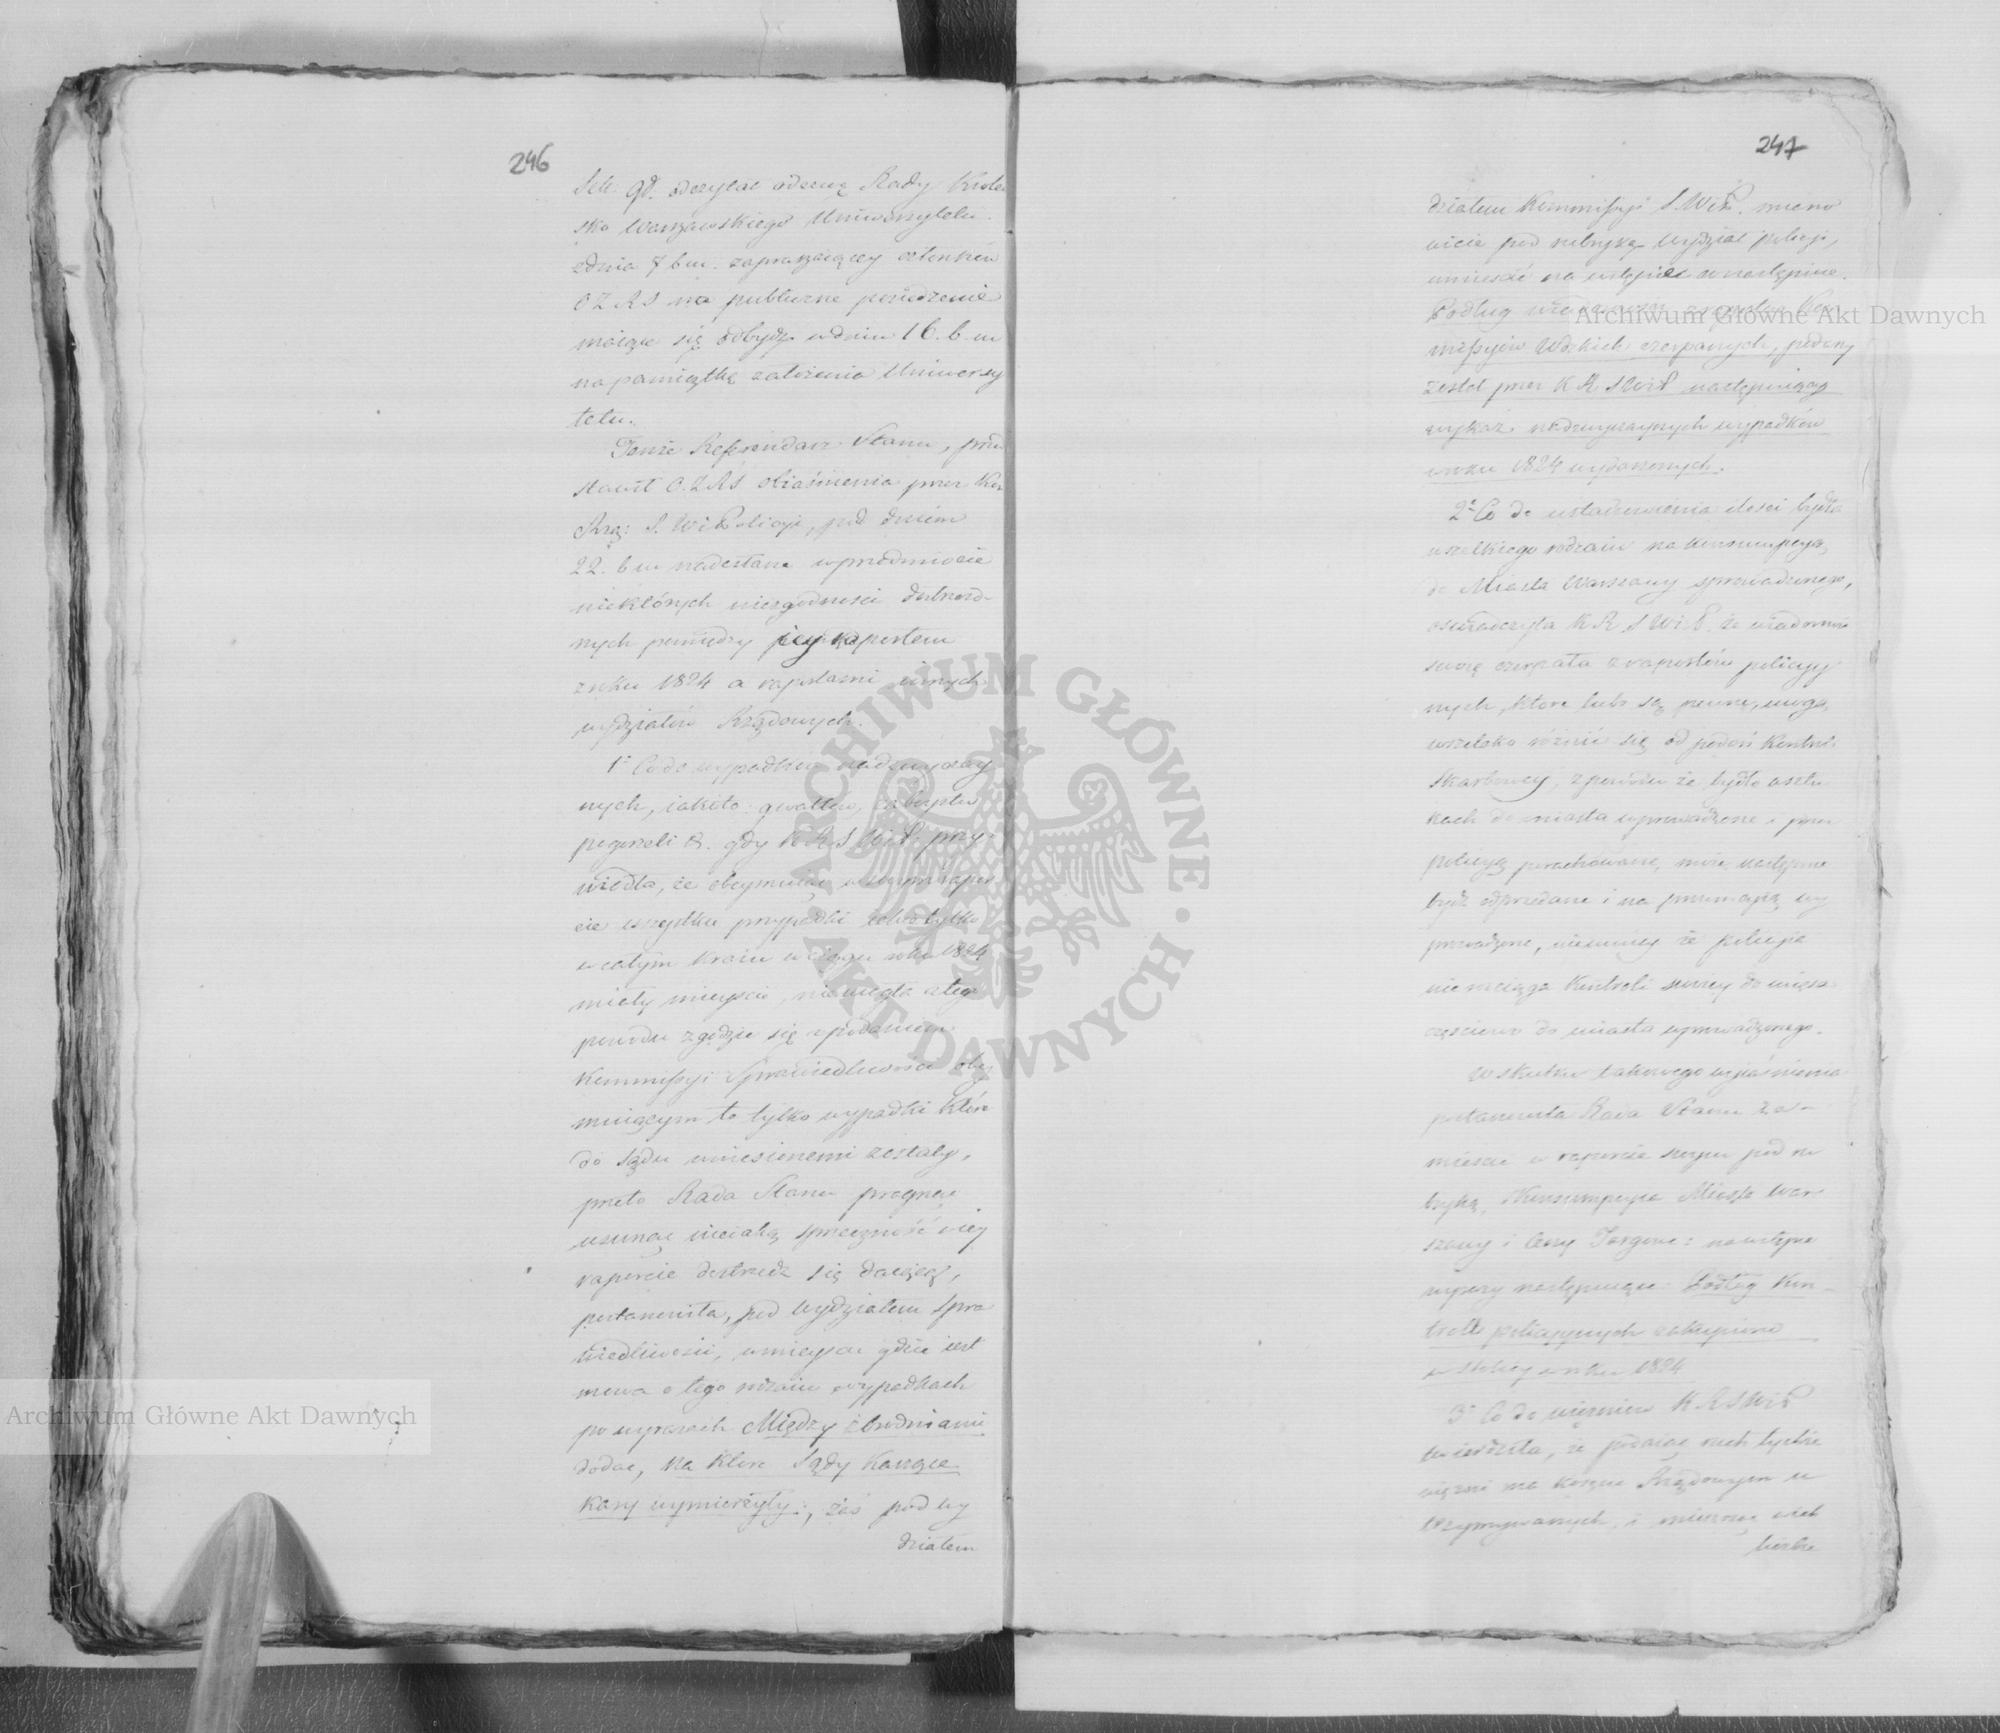 246
Sek: Gł. odczytał odezwę Rady Krole
sko Warszawskiego Uniwersytetu
z dnia 7 b m. zapraszaiącey członków
O Z R S na publiczne posiedzenie
maiące się odbydź w dniu 16. b. m
na pamiątkę założenia Uniwersy
tetu.
Tenże Referendarz Stanu, przed
stawił O. Z R S obiaśnienia przez Kom
Rząd: S. W i Policyi, pod dniem
22. b m nadesłane w przedmiocie
niektórych niezgodności dostrzeżo-
nych pomiędzy jey raportem
z roku 1824 a raportami innych
wydziałów Rządowych.
1° Co do wypadków nadzwyczay
nych, iakoto: gwałtów, zaboystw
pogorzeli &. gdy K R S W i P. przy-
wiodła, że obeymuiąc w swym rapor
cie wszystkie przypadki iakie tylko
w całym kraiu w ciągu roku 1824
miały mieysce, nie mogła z tego
powodu zgodzić się z podaniem
Kommissyi Sprawiedliwości obey
muiącym te tylko wypadki które
do Sądu wniesionemi zostały,
przeto Rada Stanu pragnąc
usunąć nieiaką sprzeczność w iey
raporcie dostrzedz się daiącą,
postanowiła, pod wydziałem Spra
wiedliwości, w mieyscu gdzie iest
mowa o tego rodzaiu wypadkach
po wyrazach Między zbrodniami
dodać, na które Sądy karzące
kary wymierzyły:, zaś pod wy
działem
247
działem Kommissyi S. W i P. miano
wicie pod rubryką Wydział policyi,
umieścić na wstępie w następnie.
Podług wiadomości z raportów Kom
missyiów Wdzkich czerpanych, podany
został przez K R S W i P następuiący
wykaz nadzwyczaynych wypadków
w roku 1824 wydarzonych.
2° Co do ustanowienia ilości bydła
wszelkiego rodzaiu na konsumpcyą
do Miasta Warszawy sprowadzonego,
oświadczyła K R S W i P. że wiadomość
swoię czerpała z raportów policyy
nych, które lubo są pewne, mogą
wszelako różnić się od podań Kontroli
Skarbowey, z powodu że bydło w sztu
kach do miasta wprowadzone i przez
policyą porachowane, może następnie
bydź odprzedane i na powrót wy
prowadzone, niemniey że policyia
nie rozciąga Kontroli swoiey do mięsa
częściowo do miasta wprowadzonego.
W skutku takowego wyiaśnienia
postanowiła Rada Stanu za-
mieścić w raporcie swym pod ru
bryką, Konsumpcyia Miasta War
szawy i Ceny Targowe: na wstępie
wyrazy następuiące: Podług Kon-
trolli policyynych zakupiono
w stolicy w roku 1824
3° Co do więzniów K R S W i P
twierdziła, że podaiąc ruch tychże
więzni na koszcie Rządowym u
trzymywanych, i mieszcząc w ich
liczbie
Archiwum Główne Akt Dawnych
Archiwum Główne Akt Dawnych
ARCHIWUM GŁÓWNE • AKT DAWNYCH •